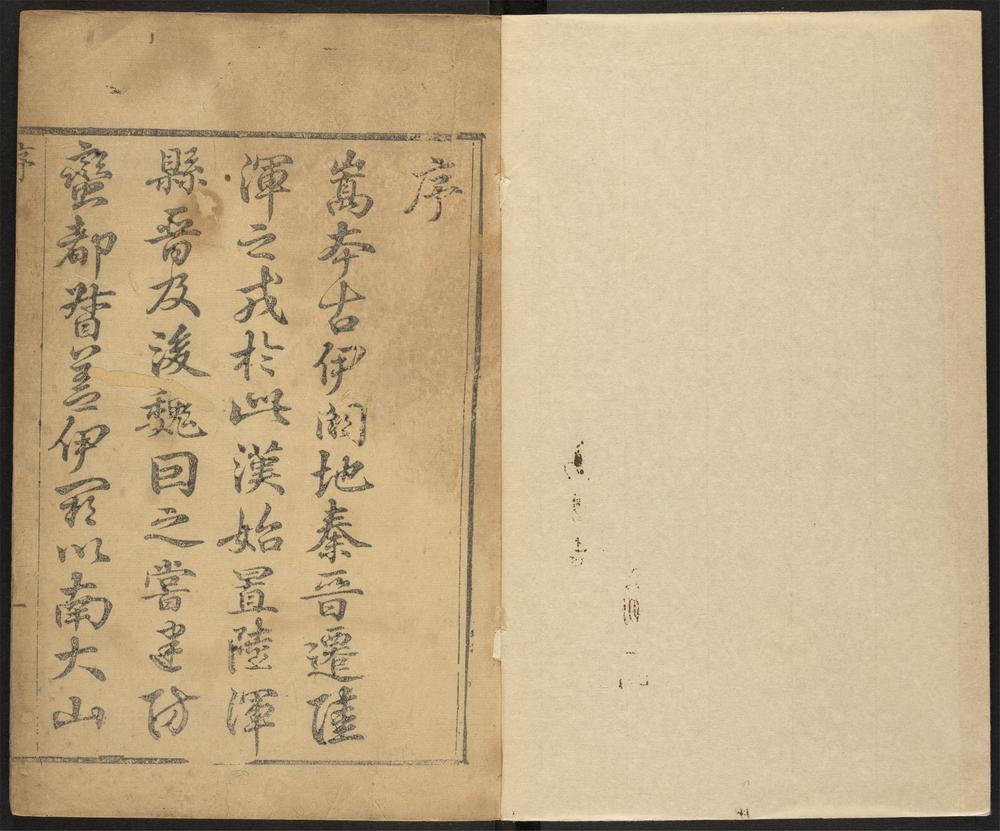 序
嵩本古伊闕地秦晉遷陸
渾之戎於此漢始置陸渾
縣晉及後魏囙之嘗建防
蠻都督葢伊闕以南大山
序